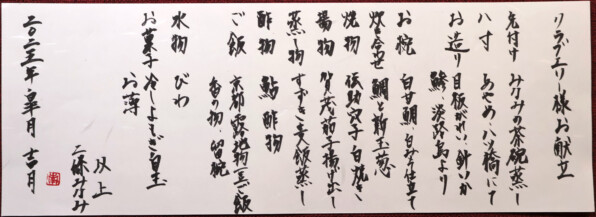 リラブエリー様お献立
先付け みなみの茶碗蒸し
八寸 あやめ八ツ橋にて
お造り 目板がれい 針いか
鯵 淡路島より
お椀 白甘鯛 白みそ仕立て
炊き合せ 鯛と新玉葱
焼物 伝助穴子 白焼き
揚物 賀茂茄子揚げ出し
蒸し物 すずき麦飯蒸し
酢物 鮎酢物
ご飯 京都 露地物 ご飯
香の物 留椀
水物 びわ
お菓子 冷しよもぎ白玉
お薄
以上
二條みなみ
二〇二三年 皐月